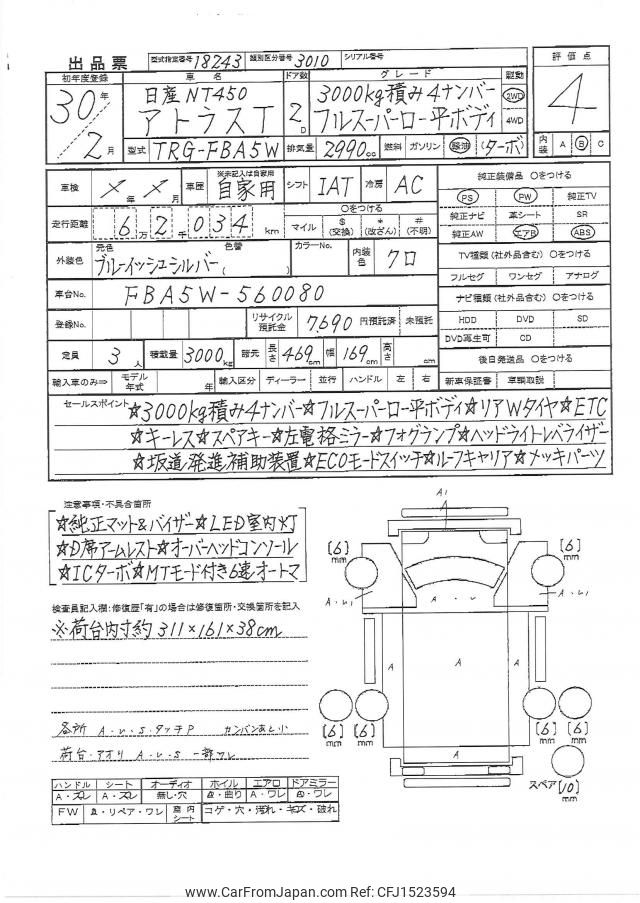 出品票
型式指定番号 18243 類別区分番号 3010 シリアル番号
初年度登録 車名 ドア数 グレード 駆動 評価点
30年 2月
日産 NT450
アトラスT
2D
3000kg積み4ナンバー
フルスーパーロー平ボディ
2WD
4WD
4
型式 TRG-FBA5W 排気量 2990cc 燃料 ガソリン 軽油 (ターボ)
内装 A B C
車検 × 年 × 月 車歴 ※未記入は自家用 自家用 シフト IAT 冷房 AC
純正装備品 ○をつける
PS PW 純正TV
純正ナビ 革シート SR
純正AW エアB ABS
走行距離 62034 km ○をつける
マイル $(交換) *(改ざん) #(不明)
外装色 元色 ブルーイッシュシルバー 色替 ( ) カラーNo. 内装色 クロ
TV種類(社外品含む) ○をつける
フルセグ ワンセグ アナログ
車台No. FBA5W-560080
ナビ種類(社外品含む) ○をつける
HDD DVD SD
DVD再生可 CD
登録No. リサイクル預託金 7,690 円預託済 未預託
定員 3人 積載量 3000kg 諸元 長さ 469cm 幅 169cm 高さ cm
後日発送品 ○をつける
輸入車のみ⇒ モデル年式 年 輸入区分 ディーラー 並行 ハンドル 左 右
新車保証書 車輌取説
セールスポイント ☆3000kg積み4ナンバー☆フルスーパーロー平ボディ☆リアWタイヤ☆ETC
☆キーレス☆スペアキー☆左電格ミラー☆フォグランプ☆ヘッドライトレベライザー
☆坂道発進補助装置☆ECOモードスイッチ☆ルーフキャリア☆メッキパーツ
注意事項・不具合箇所
☆純正マット&バイザー☆LED室内灯
☆D席アームレスト☆オーバーヘッドコンソール
☆ICターボ☆MTモード付き6速オートマ
検査員記入欄:修復歴「有」の場合は修復箇所・交換箇所を記入
※荷台内寸約 311×161×38cm
各所 A・U・S・タッチP カンバンあと小
荷台・アオリ A・U・S 一部ワレ
ハンドル シート オーディオ ホイル エアロ ドアミラー
A・ズレ A・ズレ 無し・穴 A・曲り A・ワレ A・ワレ
FW A・リペア・ワレ 室内シート コゲ・穴・汚れ・キズ・破れ
A1
[6] mm
[6] mm
A・U1
A・U
A・U1
A
A・U
A
[6] mm
[6] mm
[6] mm
[6] mm
A
スペア [10] mm
www.CarFromJapan.com Ref: CFJ1523594